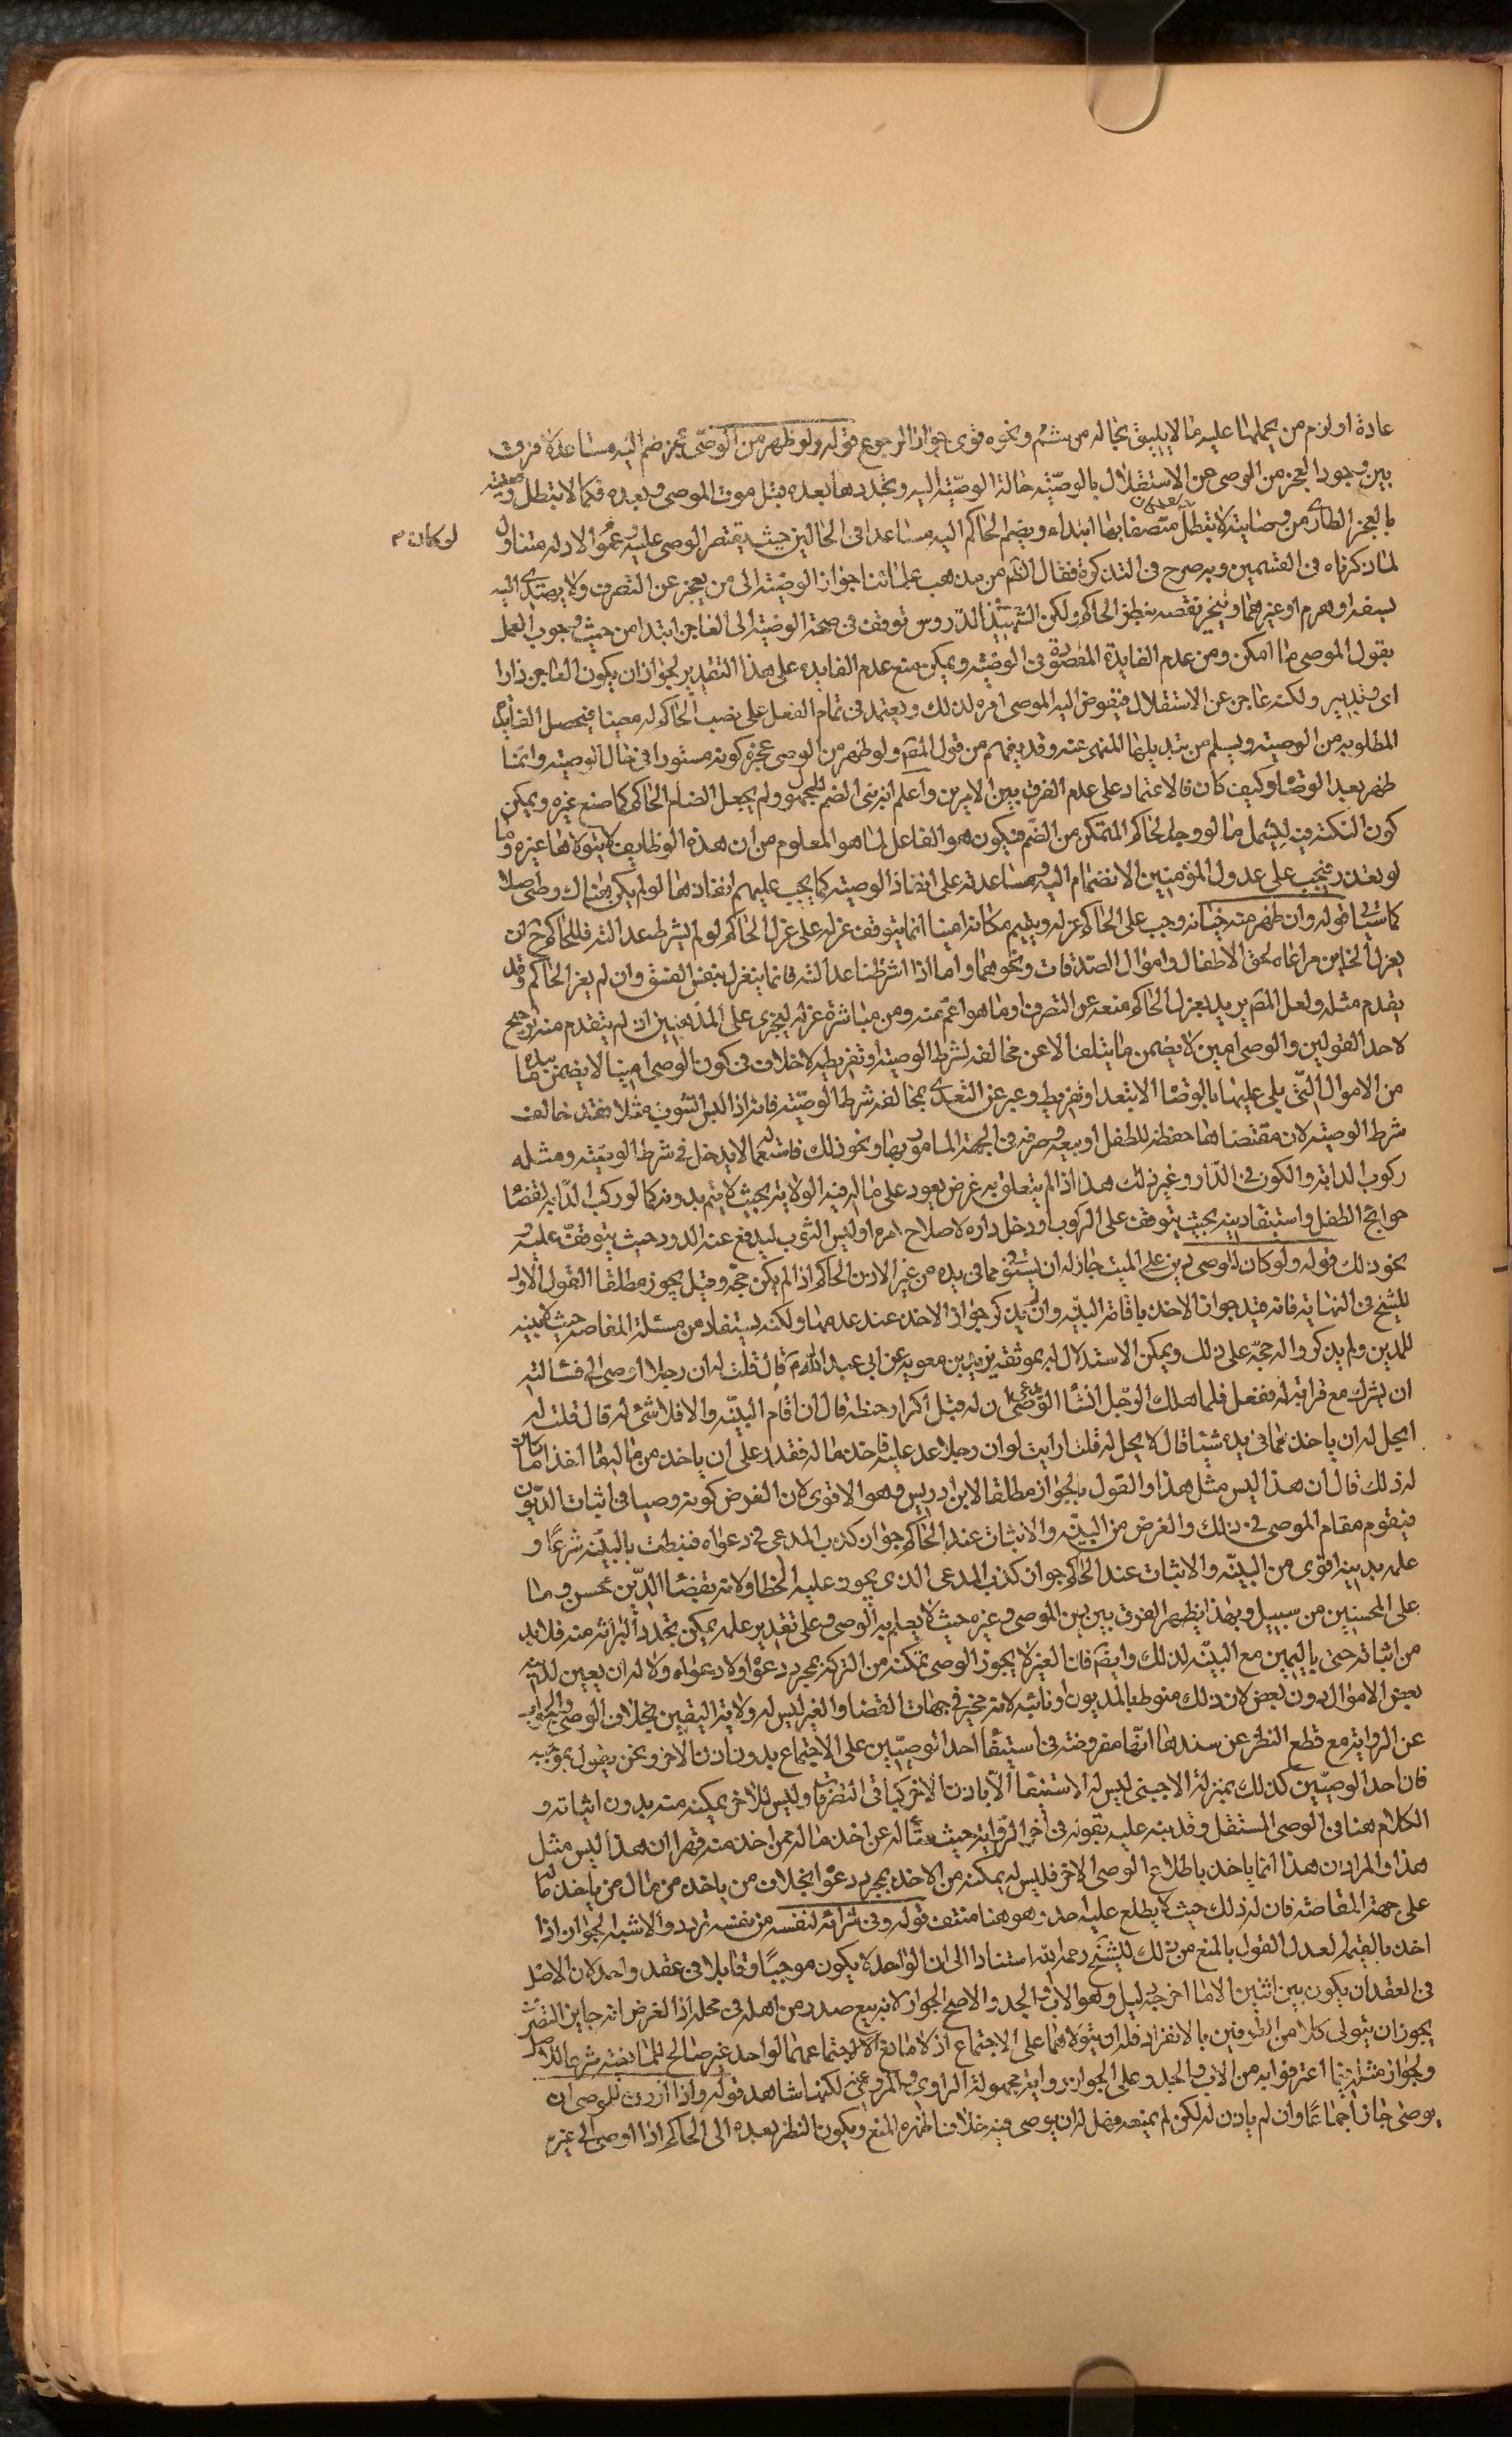 عادة او لزم من يحملها عليه ما لا يليق بحاله من شتم ونحوه قوى جواز الرجوع قوله ولو ظهر من الوصى عجز ضم اليه مساعد لا فرق
بين وجود العجز من الوصى عن الاستقلال بالوصيّة حالة الوصيّة اليه وتجددها بعده قبل موت الموصى وبعده فكما لا تبطل وصيته
بالعجز الطارى من وصايته لا تبطل متصفا بها ابتداء ويضم الحاكم اليه مساعدا فى الحالين حيث يقتصر الوصى عليه وعموم الادلة متناول
لو كان م
لما ذكرناه فى القسمين وبه صرح فى التذكرة فقال الظم من مذهب علمائنا جواز الوصية الى من يعجز عن التصرف ولا يهتدى اليه
لسفه او هرم او غيرهما وينجبر نقصه بنظر الحاكم ولكن الشهيد فى الدروس توقف فى صحة الوصية الى العاجز ابتدا من حيث وجوب العمل
بقول الموصى ما امكن ومن عدم الفايدة المقصودة فى الوصيّة ويمكن منع عدم الفايدة على هذا التقدير لجواز ان يكون العاجز ذا را
اى وتدبير ولكنه عاجز عن الاستقلال فيفوض اليه الموصى امره لذلك ويعتمد فى تمام الفعل على نصب الحاكم له معينا فيحصل الفايدة
المطلوبة من الوصية ويسلم من تبديلها المنهى عنه وقد يفهم من قول المصم ولو ظهر من الوصى عجز كونه مستورا فى حال الوصية وانما
ظهر بعد الوصا وكيف كان فالاعتماد على عدم الفرق بين الامرين واعلم انه بنى الضم للمجهول ولم يجعل الضام الحاكم كما صنع غيره ويمكن
كون النكتة فيه ليشمل ما لو وجد الحاكم المتمكن من الضّم فيكون هو الفاعل لما هو المعلوم من ان هذه الوظايف لا يتولاها غيره وما
لو تعذر فيجب على عدول المؤمنين الانضمام اليه ومساعدته على انفاذ الوصية كما يجب عليهم انفاذها لو لم يكن هناك وصى اصلا
كما سياتى قوله وان ظهر منه خيانة وجب على الحاكم عزله ويقيم مكانه امينا انما يتوقف عزله على عزل الحاكم لو لم نشترط عدالته فللحاكم ح ان
يعزل الخاين مراعاة لحق الاطفال واموال الصدقات ونحوهما واما اذا اشترطنا عدالته فانما ينعزل بنفس الفسق وان لم يعز الحاكم وقد
يقدم مثله ولعل المصم يريد بعزل الحاكم منعه عن التصرف او ما هو اعمّ منه ومن مباشرة عزله ليجرى على المذهبين اذ لم يتقدم منه ترجيح
لاحد القولين والوصى امين لا يضمن ما يتلف الا عن مخالفه لشرط الوصية او تفريط لا خلاف فى كون الوصى امينا لا يضمن ما بيده
من الاموال التّى يلى عليها بالوصا الا بتعد او تفريط وعبر عن التعدى بمخالفة شرط الوصيّة فانه اذا لبس الثوب مثلا فقد خالف
شرط الوصية لان مقتضاها حفظه للطفل او بيعه وصرفه فى الجهة المامور بها ونحو ذلك فاستعماله لا يدخل فى شرط الوصيّة ومثله
ركوب الدابة والكون فى الدّار وغير ذلك هذا اذا لم يتعلق به غرض يعود على ما له فيه الولاية بحيث لا يتم بدونه كما لو ركب الدّابه لقضا
حوايج الطفل واستيفاء دينه بحيث يتوقف على الركوب او دخل داره لاصلاح امره او لبس الثوب ليدفع عنه الدود حيث يتوقف عليه
نحو ذلك قوله ولو كان للوصى دين على الميت جاز له ان يستوفى مما فى يده من غير الاذن الحاكم اذا لم يكن حجّة وقيل يجوز مطلقا القول الاول
للشيخ فى النهاية فانه قيد جواز الاخذ باقامة البيّنه وان لم يذكر جواز الاخذ عند عدمها ولكنه يستفاد من مسئلة المقاصه حيث لا بينه
للمدين ولم يذكروا له حجّة على ذلك ويمكن الاستدلال له بموثقة بريد بن معوية عن ابى عبد الله م قال قلت له ان رجلا اوصى الى فسالته
ان يشرك مع قرابة له ففعل فلما هلك الرّجل انشأ الوصى يدعى ان له قبل اكرار حنطة قال ان اقام البيّنه والا فلا شئ له قال قلت له
ايحل له ان ياخذ مما فى يده شيئا قال لا يحل له قلت ارايت لو ان رجلا عدا عليه فاخذ ماله فقدر على ان ياخذ من ماله ما اخذ اما كان
له ذلك قال ان هذا ليس مثل هذا والقول بالجواز مطلقا لابن ادريس وهو الاقوى لان الفرض كونه وصيا فى اثبات الديون
فيقوم مقام الموصى فى ذلك والغرض من البيّنه والاثبات عند الحاكم جواز كذب المدعى فى دعواه فنيطت بالبيّنه شرعا و
علمه بدينه اقوى من البيّنه والاثبات عند الحاكم جواز كذب المدعى الذى يجوز عليه الخطا ولانه بقضا الدّين محسن وما
على المحسنين من سبيل وبهذا يظهر الفرق بين بين الموصى وغيره حيث لا يعلم به الوصى وعلى تقدير علمه يمكن تجدد البرائه منه فلا بد
من اثباته حتى باليمين مع البيّنه لذلك وايضم فان الغير لا يجوز الوصى تمكنه من التركة بمجرد دعوا ولا دعواه ولا له ان يعين لدينه
بعض الاموال دون بعض لان ذلك منوط بالمديون او نائبه لانه مخير فى جهات القضا والغير ليس له ولاية التعين بخلاف الوصى والجواب
عن الرواية مع قطع النظر عن سندها انّها مفروضة فى استيفا احد الوصيّين على الاجتماع بدون اذن الاخر ونحن نقول بموجبه
فان احد الوصيّين كذلك بمنزلة الاجنبى ليس له الاستيفا الّا باذن الاخر كباقى التصرفات وليس للاخر تمكينه منه بدون اثباته و
الكلام هنا فى الوصى المستقل وقد نبه عليه بقوله فى آخر الرّواية حيث سأله عن اخذ ماله ممن اخذ منه قهرا ان هذا ليس مثل
هذا والمراد ان هذا انما ياخذ باطلاع الوصى الاخر فليس له يمكنه من الاخذ بمجرد دعوا بخلاف من ياخذ من مال من ياخذ ماله
على جهة المقاصة فان له ذلك حيث لا يطلع عليه احد وهو هنا منتف قوله وفى شرائه لنفسه من نفسه تردد والاشبه الجواز اذا
اخذ بالقيمة العدل القول بالمنع من ذلك للشيخ رحمه الله استنادا الى ان الواحد لا يكون موجبًا وقابلا فى عقد واحد لان الاصل
فى العقد ان يكون بين اثنين الا ما اخرجه دليل وهو الاب والجد والاصح الجواز لانه بيع صدر من اهله فى محله اذ الغرض انه جايز التصرف
يجوز ان يتولى كلا من الطرفين بالانفراد فله ان يتولاهما على الاجتماع اذ لا مانع الا اجتماعهما لواحد غير صالح للمانعيّة شرعا للاصل
ولجواز مثله فيما اعترفوا به من الاب والجد وعلى الجواز رواية مجهولة الراوى والمروى عنه لكنها شاهد قوله واذا اذن للوصى ان
يوصى جاز اجماعا وان لم ياذن له لكن لم يمنعه فهل له ان يوصى فيه خلاف اظهره المنع ويكون النظر بعده الى الحاكم اذا اوصى الى غيره